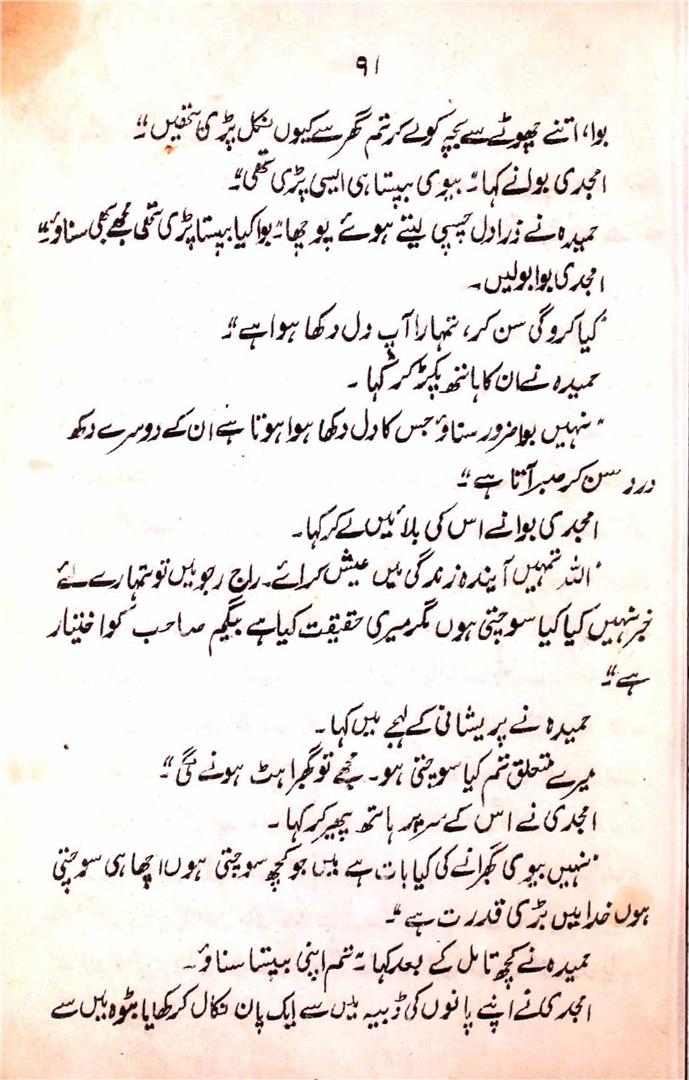 ۹۱
بوا، اتنے چھوٹے سے بچہ کو لے کر تم گھر سے کیوں نکل پڑی تھیں"۔
امجدی بوا نے کہا۔" بیوی بپتا ہی ایسی پڑی تھی"۔
حمیدہ نے ذرا دل چسپی لیتے ہوئے پوچھا۔" بوا کیا بپتا پڑی تھی مجھے بھی سناؤ"۔
امجدی بوا بولیں۔
"کیا کروگی سن کر، تمہارا آپ دل دکھا ہوا ہے"۔
حمیدہ نے ان کا ہاتھ پکڑ کر کہا۔
"نہیں بوا ضرور سناؤ جس کا دل دکھا ہوا ہوتا ہے ان کے دوسرے دکھ
درد سن کر صبر آتا ہے"۔
امجدی بوا نے اس کی بلائیں لے کر کہا۔
"اللہ تمہیں آیندہ زندگی میں عیش کرائے۔ راج رجو میں تو تمہارے لئے
خبر نہیں کیا کیا سوچتی ہوں مگر میری حقیقت کیا ہے بیگم صاحب کو اختیار
ہے"۔
حمیدہ نے پریشانی کے لہجے میں کہا۔
میرے متعلق تم کیا سوچتی ہو۔ مجھے تو گھبراہٹ ہونے لگی"۔
امجدی نے اس کے سر پر ہاتھ پھیر کر کہا۔
"نہیں بیوی گھبرانے کی کیا بات ہے میں جو کچھ سوچتی ہوں اچھا ہی سوچتی
ہوں خدا میں بڑی قدرت ہے"۔
حمیدہ نے کچھ تامل کے بعد کہا۔" تم اپنی بپتا سناؤ۔
امجدی نے اپنے پانوں کی ڈبیہ میں سے ایک پان نکال کر کھایا بٹوہ میں سے